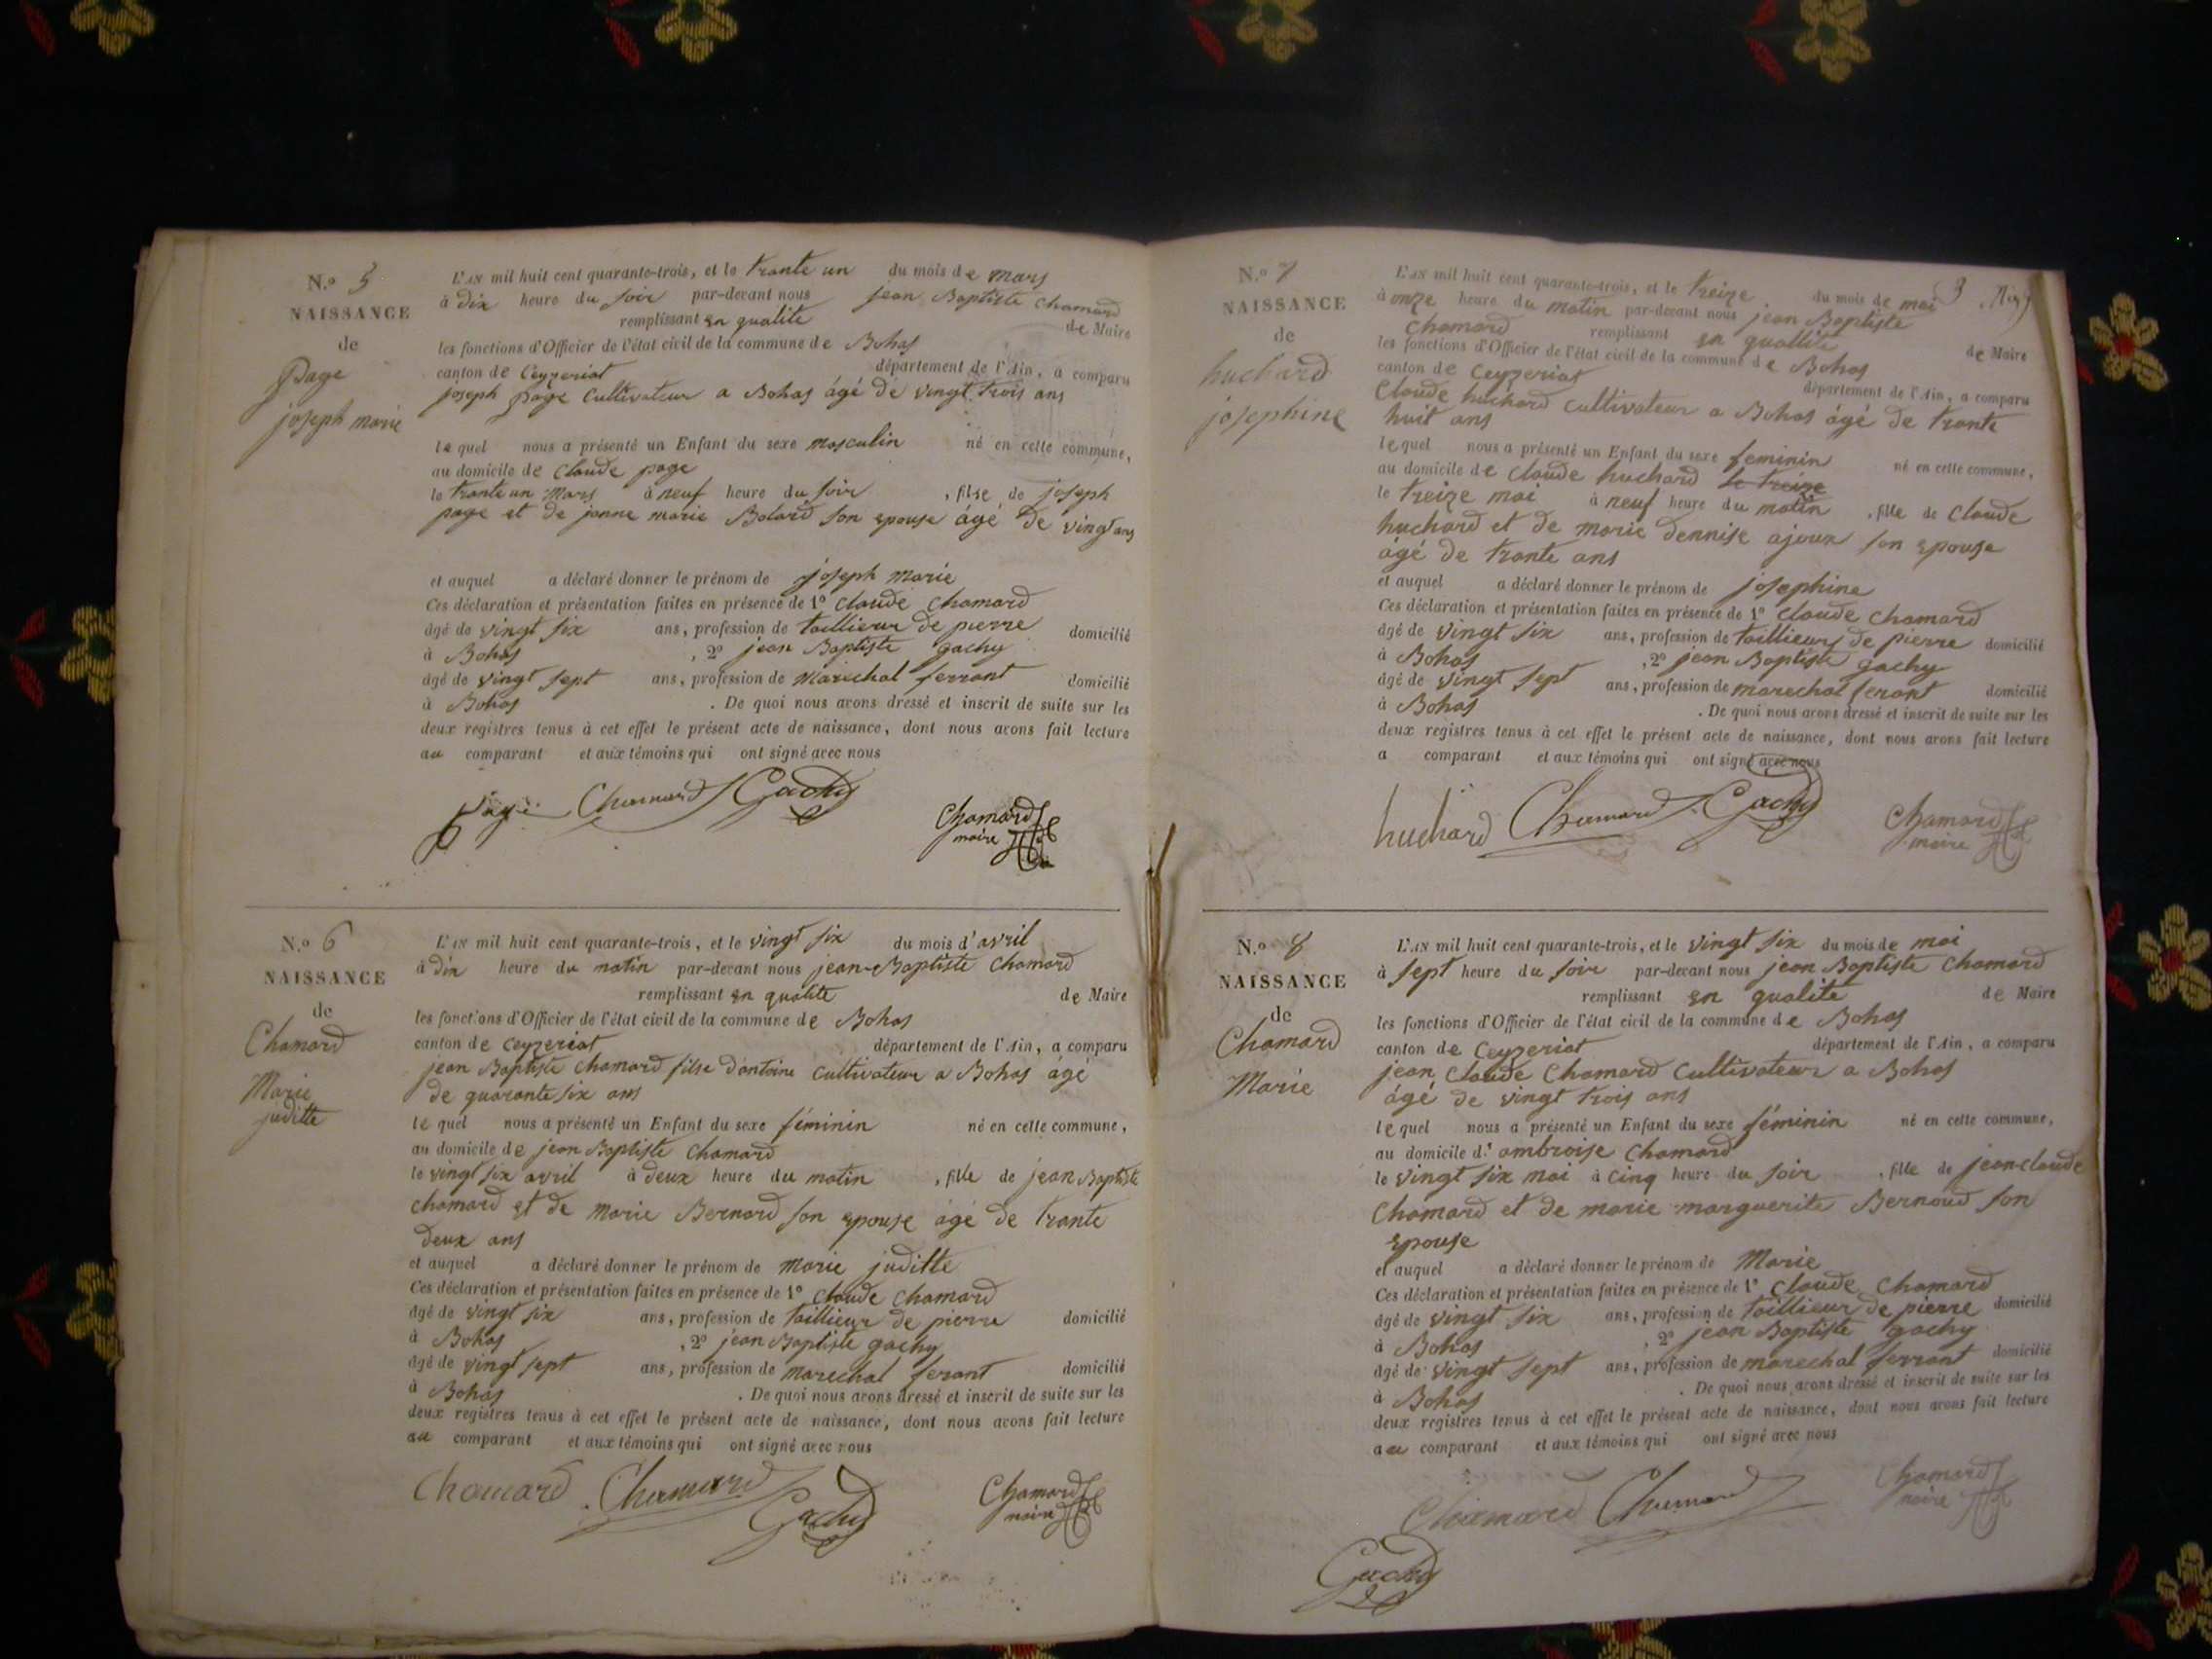 N.o 5
NAISSANCE
de
page
joseph marie
L'AN mil huit cent quarante-trois, et le trante un du mois de mars
à dix heure du soir par-devant nous jean Baptiste Chamard
remplissant en qualite de Maire
les fonctions d'Officier de l'état civil de la commune de Bohas
canton de Ceyzeriat département de l'Ain, a comparu
joseph page Cultivateur a Bohas âgé de vingt trois ans
lequel nous a présenté un Enfant du sexe masculin né en cette commune,
au domicile de Claude page
le trante un Mars à neuf heure du soir , filse de joseph
page et de janne marie Bolard son epouse âgé de vingt ans
et auquel a déclaré donner le prénom de joseph marie
Ces déclaration et présentation faites en présence de 1o Claude Chamard
âgé de vingt six ans, profession de taillieur de pierre domicilié
à Bohas , 2o jean Baptiste gachy
âgé de vingt sept ans, profession de Marechal ferrant domicilié
à Bohas . De quoi nous avons dressé et inscrit de suite sur les
deux registres tenus à cet effet le présent acte de naissance, dont nous avons fait lecture
au comparant et aux témoins qui ont signé avec nous
page Chamard Gachy
Chamard
maire
N.o 6
NAISSANCE
de
Chamard
Marie
juditte
L'AN mil huit cent quarante-trois, et le vingt six du mois d'avril
à dix heure du matin par-devant nous jean-Baptiste Chamard
remplissant en qualite de Maire
les fonctions d'Officier de l'état civil de la commune de Bohas
canton de Ceyzeriat département de l'Ain, a comparu
jean Baptiste Chamard filse d'antoine Cultivateur a Bohas âgé
de quarante six ans
lequel nous a présenté un Enfant du sexe féminin né en cette commune,
au domicile de jean Baptiste Chamard
le vingt six avril à deux heure du matin , fille de jean Baptiste
chamard et de Marie Bernard son epouse âgé de trante
deux ans
et auquel a déclaré donner le prénom de Marie juditte
Ces déclaration et présentation faites en présence de 1o Claude Chamard
âgé de vingt six ans, profession de taillieur de pierre domicilié
à Bohas , 2o jean Baptiste gachy
âgé de vingt sept ans, profession de Marechal ferant domicilié
à Bohas . De quoi nous avons dressé et inscrit de suite sur les
deux registres tenus à cet effet le présent acte de naissance, dont nous avons fait lecture
au comparant et aux témoins qui ont signé avec nous
Chamard Chamard
Gachy
Chamard
maire
3
N.o 7
NAISSANCE
de
huchard
josephine
L'AN mil huit cent quarante-trois, et le treize du mois de mai
à onze heure du matin par-devant nous jean Baptiste
Chamard remplissant en qualite de Maire
les fonctions d'Officier de l'état civil de la commune de Bohas
canton de Ceyzeriat département de l'Ain, a comparu
Claude huchard Cultivateur a Bohas âgé de trante
huit ans
lequel nous a présenté un Enfant du sexe feminin né en cette commune,
au domicile de Claude huchard le treize
le treize mai à neuf heure du matin , fille de Claude
huchard et de marie dennise ajoux son epouse
âgé de trante ans
et auquel a déclaré donner le prénom de josephine
Ces déclaration et présentation faites en présence de 1o Claude Chamard
âgé de vingt six ans, profession de taillieurs de pierre domicilié
à Bohas , 2o jean Baptiste gachy
âgé de vingt sept ans, profession de marechal ferant domicilié
à Bohas . De quoi nous avons dressé et inscrit de suite sur les
deux registres tenus à cet effet le présent acte de naissance, dont nous avons fait lecture
a comparant et aux témoins qui ont signé avec nous
huchard Chamard Gachy
Chamard
maire
N.o 8
NAISSANCE
de
Chamard
Marie
L'AN mil huit cent quarante-trois, et le vingt six du mois de mai
à sept heure du soir par-devant nous jean Baptiste Chamard
remplissant en qualite de Maire
les fonctions d'Officier de l'état civil de la commune de Bohas
canton de Ceyzeriat département de l'Ain, a comparu
jean Claude Chamard Cultivateur a Bohas
âgé de vingt trois ans
lequel nous a présenté un Enfant du sexe féminin né en cette commune,
au domicile d' ambroise Chamard
le vingt six mai à Cinq heure du soir , fille de jean-claude
Chamard et de marie marguerite Bernoud son
epouse
et auquel a déclaré donner le prénom de Marie
Ces déclaration et présentation faites en présence de 1o Claude Chamard
âgé de vingt six ans, profession de taillieur de pierre domicilié
à Bohas , 2o jean Baptiste gachy
âgé de vingt sept ans, profession de marechal ferrant domicilié
à Bohas . De quoi nous avons dressé et inscrit de suite sur les
deux registres tenus à cet effet le présent acte de naissance, dont nous avons fait lecture
au comparant et aux témoins qui ont signé avec nous
Chamard Chamard
Chamard
maire
Gachy